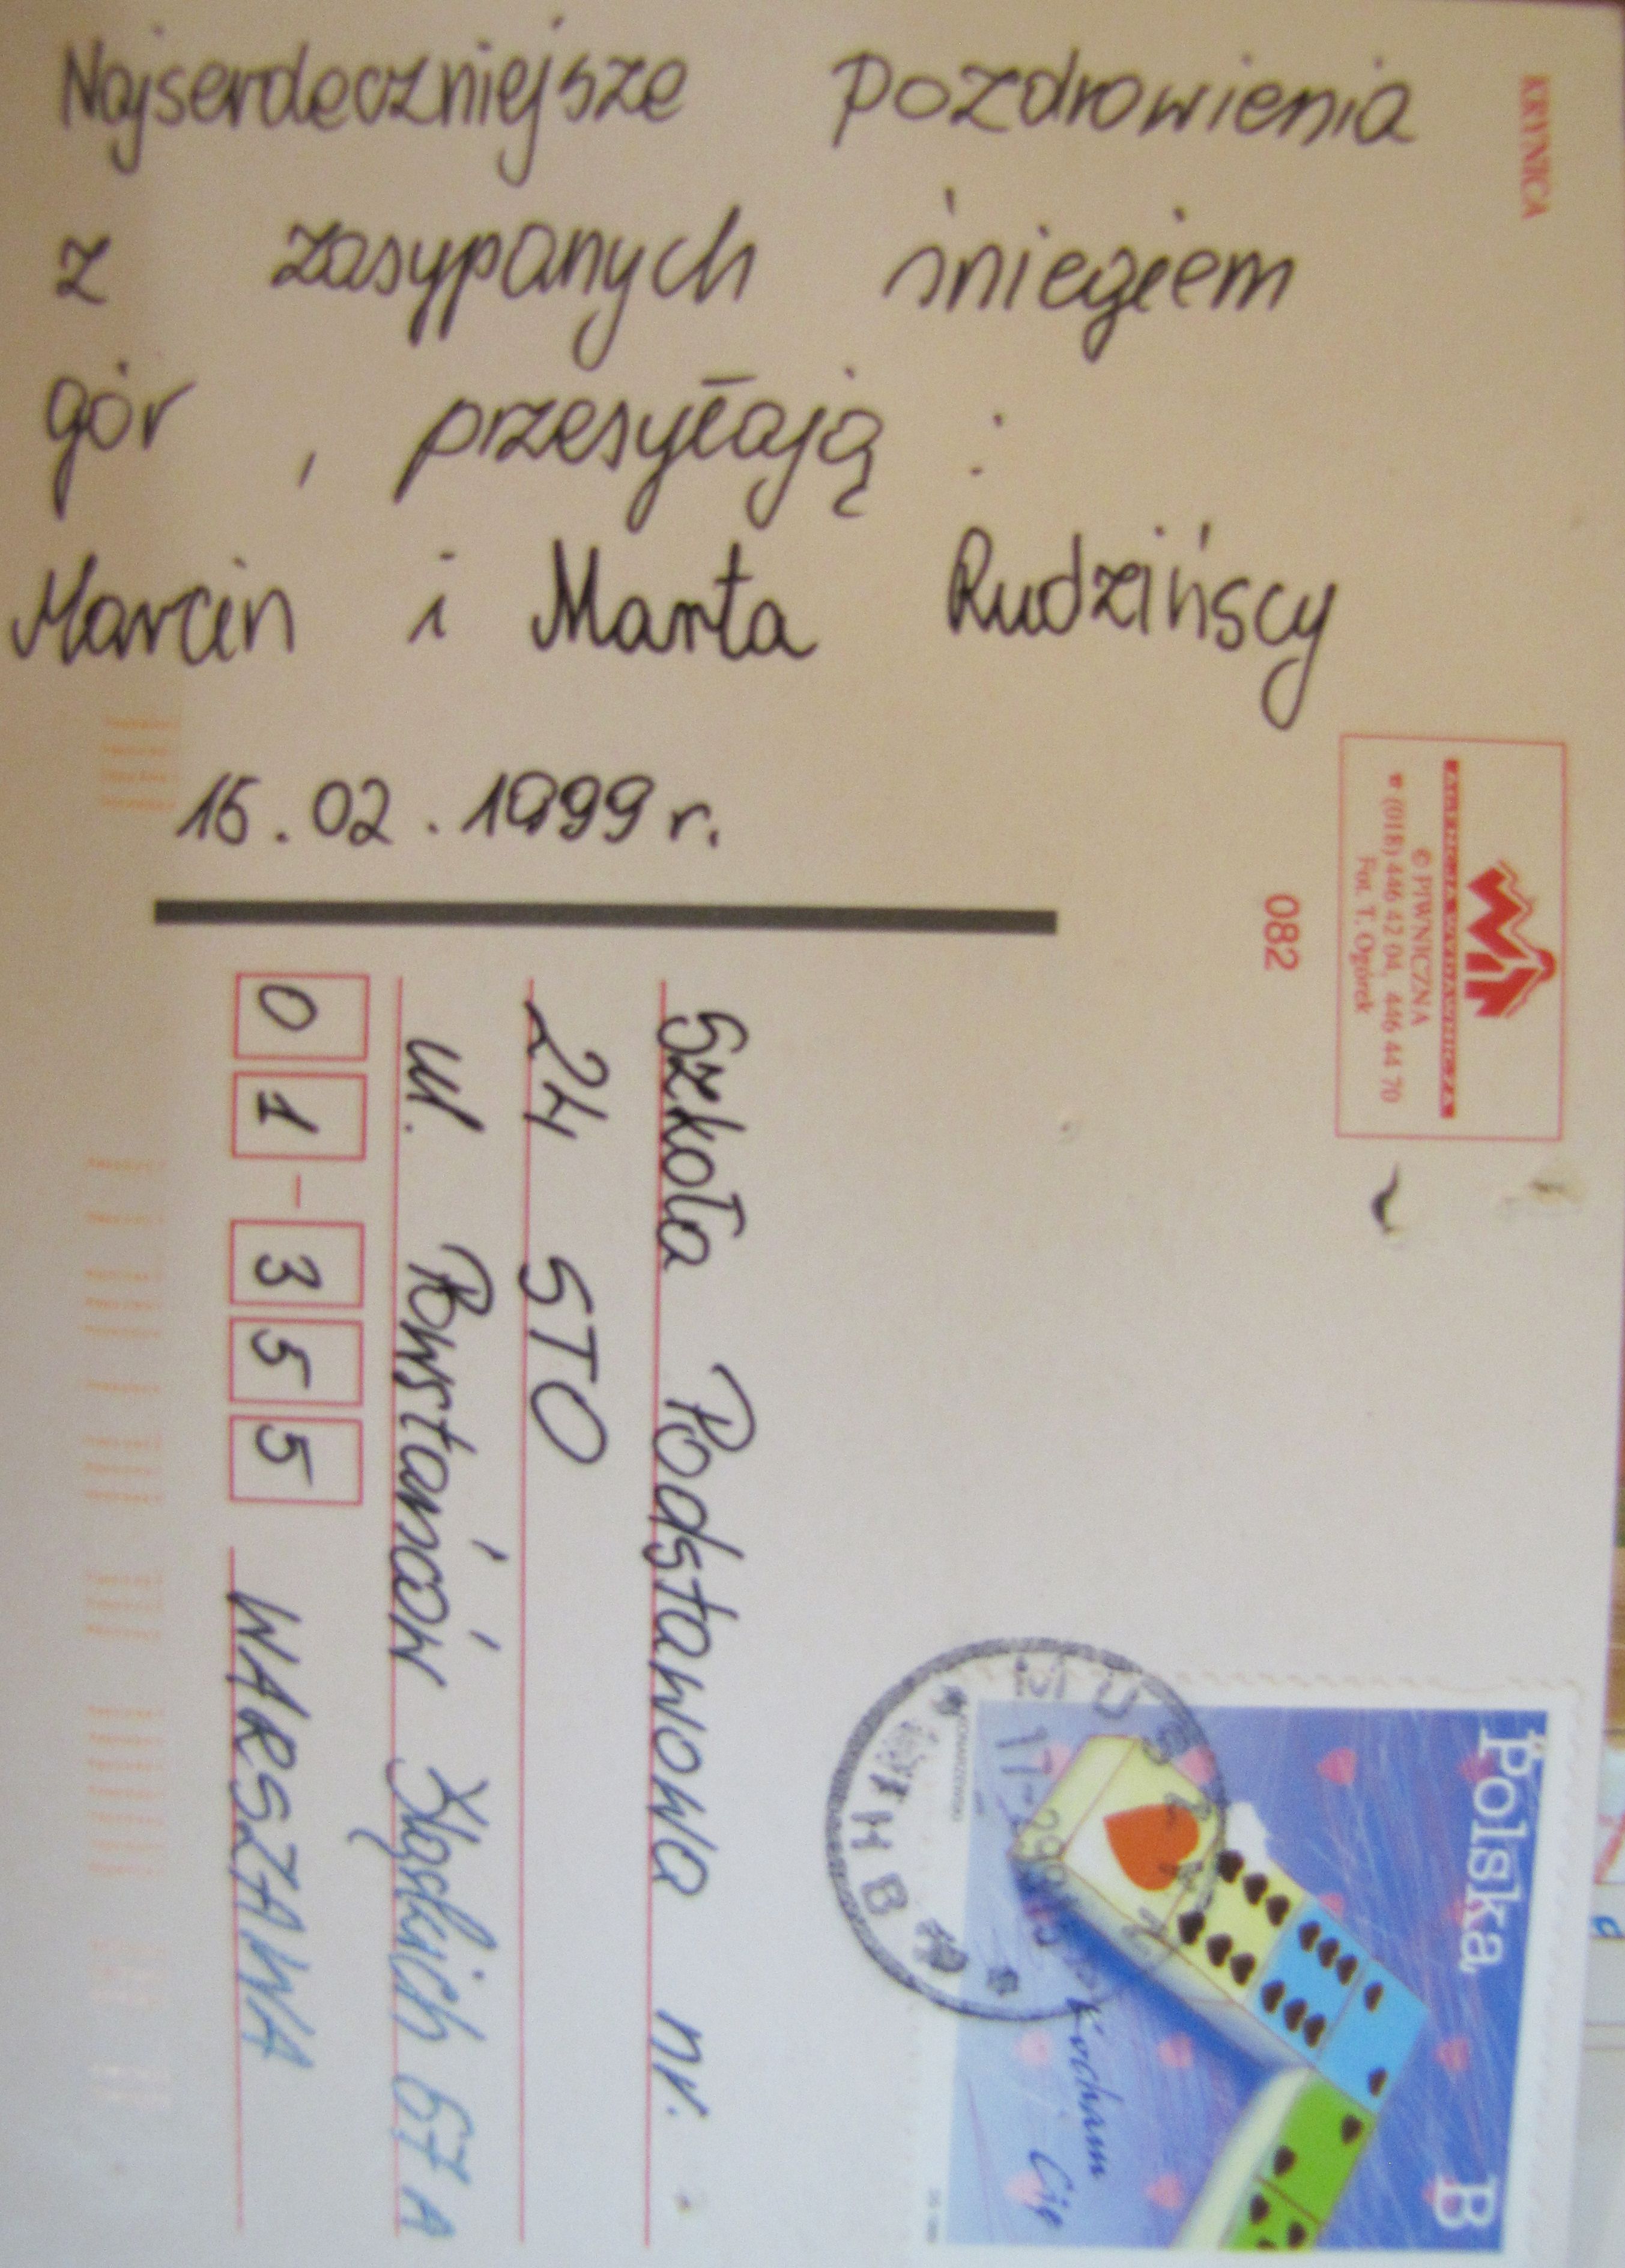 KRYNICA
Najserdeczniejsze pozdrowienia
z zasypanych śniegiem
gór, przesyłają:
Marcin i Marta Rudzińscy
15.02.1999 r.
© PIWNICZNA
(018) 446 42 04, 446 44 70
Fot. T. Ogórek
082
Szkoła Podstawowa nr.
24 STO
ul. Powstańców Śląskich 67 A
01-355 WARSZAWA
Polska B
Kocham
Cię